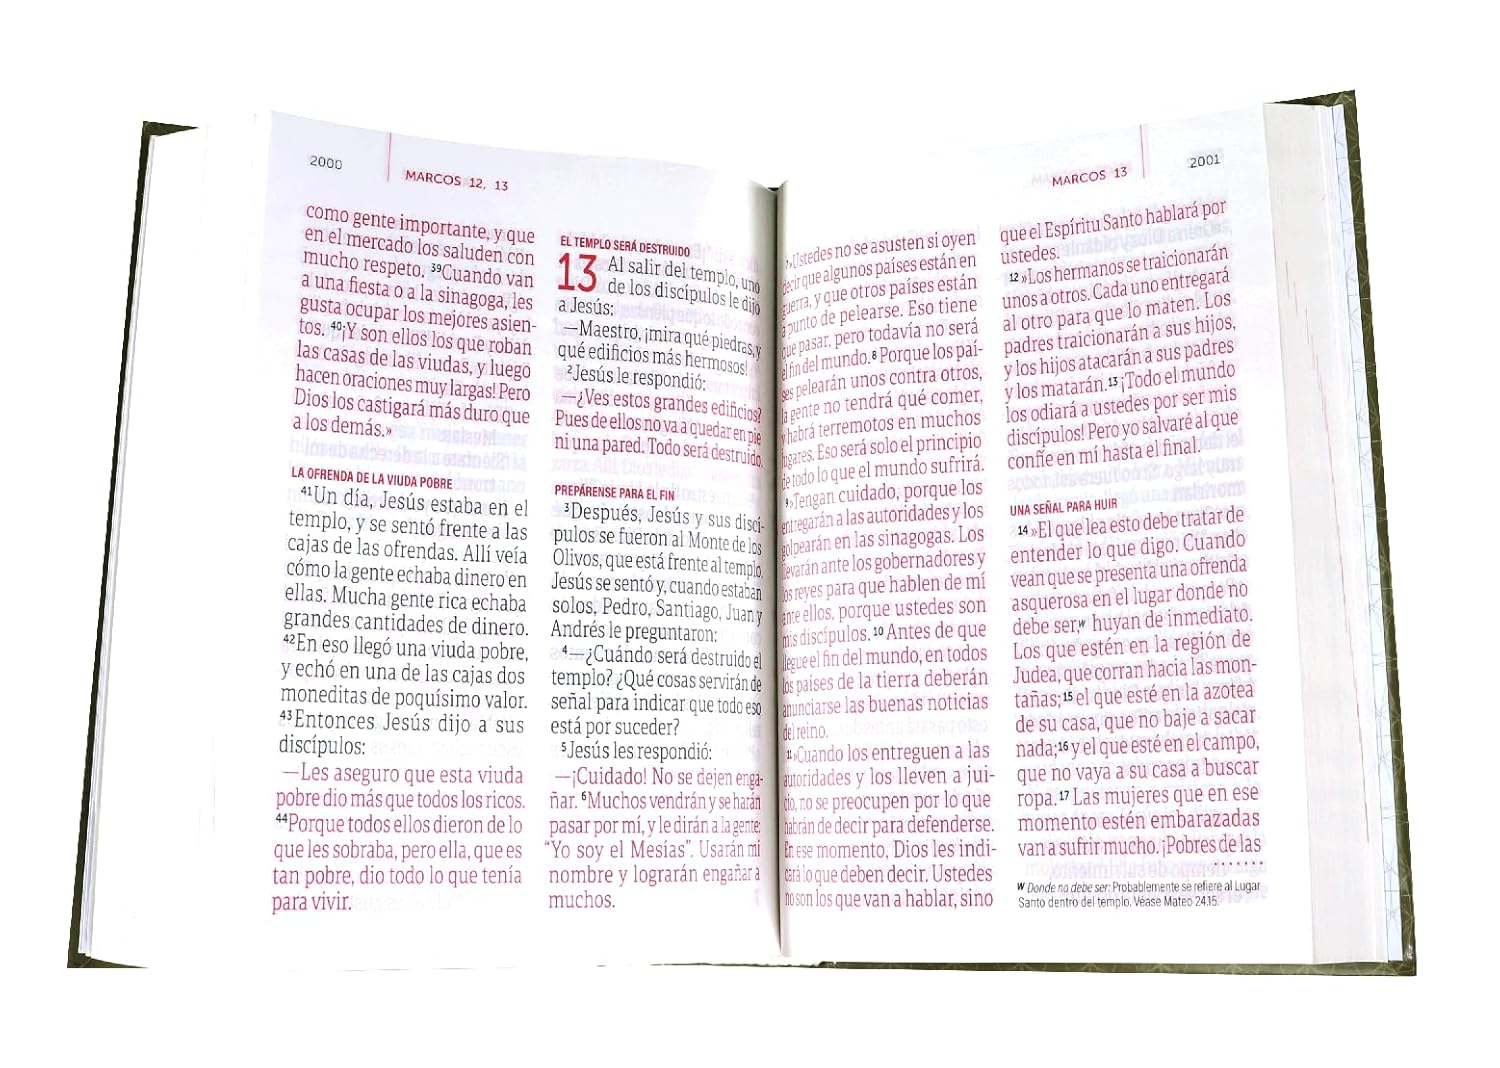 2000
MARCOS 12, 13
como gente importante, y que
en el mercado los saluden con
mucho respeto. 39Cuando van
a una fiesta o a la sinagoga, les
gusta ocupar los mejores asien-
tos. 40¡Y son ellos los que roban
las casas de las viudas, y luego
hacen oraciones muy largas! Pero
Dios los castigará más duro que
a los demás.»
LA OFRENDA DE LA VIUDA POBRE
41Un día, Jesús estaba en el
templo, y se sentó frente a las
cajas de las ofrendas. Allí veía
cómo la gente echaba dinero en
ellas. Mucha gente rica echaba
grandes cantidades de dinero.
42En eso llegó una viuda pobre,
y echó en una de las cajas dos
moneditas de poquísimo valor.
43Entonces Jesús dijo a sus
discípulos:
—Les aseguro que esta viuda
pobre dio más que todos los ricos.
44Porque todos ellos dieron de lo
que les sobraba, pero ella, que es
tan pobre, dio todo lo que tenía
para vivir.
EL TEMPLO SERÁ DESTRUIDO
13 Al salir del templo, uno
de los discípulos le dijo
a Jesús:
—Maestro, ¡mira qué piedras, y
qué edificios más hermosos!
2Jesús le respondió:
—¿Ves estos grandes edificios?
Pues de ellos no va a quedar en pie
ni una pared. Todo será destruido.
PREPÁRENSE PARA EL FIN
3Después, Jesús y sus discí-
pulos se fueron al Monte de los
Olivos, que está frente al templo.
Jesús se sentó y, cuando estaban
solos, Pedro, Santiago, Juan y
Andrés le preguntaron:
4—¿Cuándo será destruido el
templo? ¿Qué cosas servirán de
señal para indicar que todo eso
está por suceder?
5Jesús les respondió:
—¡Cuidado! No se dejen enga-
ñar. 6Muchos vendrán y se harán
pasar por mí, y le dirán a la gente:
“Yo soy el Mesías”. Usarán mi
nombre y lograrán engañar a
muchos.
MARCOS 13
2001
7»Ustedes no se asusten si oyen
decir que algunos países están en
guerra, y que otros países están
a punto de pelearse. Eso tiene
que pasar, pero todavía no será
el fin del mundo. 8Porque los paí-
ses pelearán unos contra otros,
la gente no tendrá qué comer,
y habrá terremotos en muchos
lugares. Eso será solo el principio
de todo lo que el mundo sufrirá.
9»Tengan cuidado, porque los
entregarán a las autoridades y los
golpearán en las sinagogas. Los
llevarán ante los gobernadores y
los reyes para que hablen de mí
ante ellos, porque ustedes son
mis discípulos. 10Antes de que
llegue el fin del mundo, en todos
los países de la tierra deberán
anunciarse las buenas noticias
del reino.
11»Cuando los entreguen a las
autoridades y los lleven a jui-
cio, no se preocupen por lo que
habrán de decir para defenderse.
En ese momento, Dios les indi-
cará lo que deben decir. Ustedes
no son los que van a hablar, sino
que el Espíritu Santo hablará por
ustedes.
12»Los hermanos se traicionarán
unos a otros. Cada uno entregará
al otro para que lo maten. Los
padres traicionarán a sus hijos,
y los hijos atacarán a sus padres
y los matarán. 13¡Todo el mundo
los odiará a ustedes por ser mis
discípulos! Pero yo salvaré al que
confíe en mí hasta el final.
UNA SEÑAL PARA HUIR
14»El que lea esto debe tratar de
entender lo que digo. Cuando
vean que se presenta una ofrenda
asquerosa en el lugar donde no
debe ser,w huyan de inmediato.
Los que estén en la región de
Judea, que corran hacia las mon-
tañas; 15el que esté en la azotea
de su casa, que no baje a sacar
nada; 16y el que esté en el campo,
que no vaya a su casa a buscar
ropa. 17Las mujeres que en ese
momento estén embarazadas
van a sufrir mucho. ¡Pobres de las
W Donde no debe ser: Probablemente se refiere al Lugar
Santo dentro del templo. Véase Mateo 24.15.